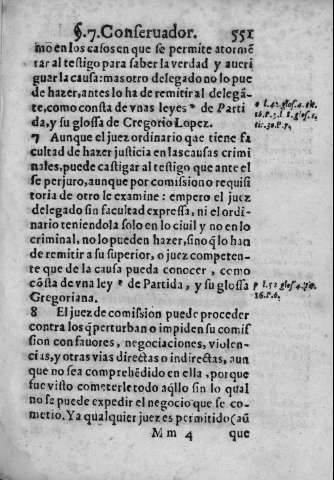 §.7. Conseruador. 551
mo en los casos en que se permite atormē
tar al testigo para saber la verdad y aueri
guar la causa: mas otro delegado no lo pue
de hazer, antes lo ha de remitir al delegā-
te, como consta de vnas leyes º de Parti
da, y su glossa de Gregorio Lopez.
7 Aunque el juez ordinario que tiene fa
cultad de hazer justicia en las causas crimi
nales, puede castigar al testigo que ante el
se perjuro, aunque por comission o requisi
toria de otro le examine: empero el juez
delegado sin facultad expressa, ni el ordi-
nario teniendola solo en lo ciuil y no en lo
criminal, no lo pueden hazer, sino q̃ lo han
de remitir a su superior, o juez competen-
te que de la causa pueda conocer, como
cōsta de vna ley ᵖ de Partida, y su glossa
Gregoriana.
8 El juez de comission puede proceder
contra los q̃ perturban o impiden su comis
sion con fauores, negociaciones, violen-
cias, y otras vias directas o indirectas, aun
que no sea comprehēdido en ella, porque
fue visto cometerle todo aq̃llo sin lo qual
no se puede expedir el negocio que se co-
metio. Ya qualquier juez es permitido (aũ
M m 4 que
o l. 42. glos. 4. tit.
16. P. 3. l. 
p l. 52 glos. 4.
16. P. 6.